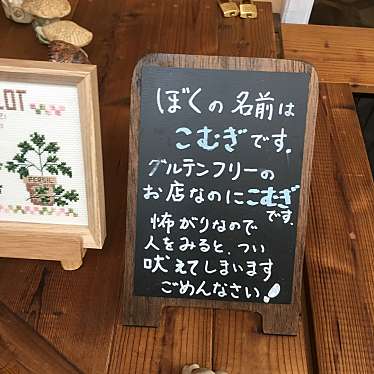 LOT
PERSIL
ぼくの名前は
こむぎです.
グルテンフリーの
お店なのにこむぎ
です.
怖がりなので
人をみると、つい
吠えてしまいます
ごめんなさい!